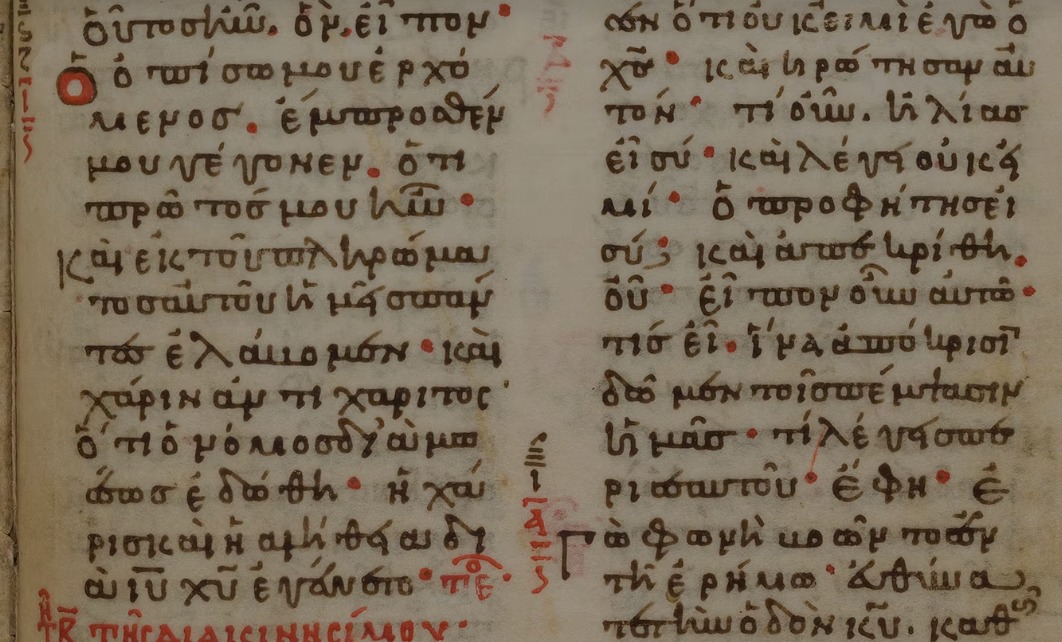 οὗτος ἦν. ὃν εἶπον
Ὁ ὀπίσω μου ἐρχό
μενος. ἔμπροσθέν
μου γέγονεν. ὅτι
πρῶτός μου ἦν
καὶ ἐκ τοῦ πληρώμα
τος αὐτοῦ ἡμεῖς πάν
τες ἐλάβομεν καὶ
χάριν ἀντι χάριτος
ὅτι ὁ νόμος διὰ μω
σέως ἐδόθη ἡ χά
ρις καὶ ἡ ἀλήθεια δι
ὰ ιυ χυ ἐγένετο
τῆς διακινησίμου
ὅτι οὐκ εἰμὶ ἐγὼ ὁ
χς καὶ ἠρώτησαν αὐ
τόν τί οὖν. ἠλίας
εἶ σύ καὶ λέγει οὐκ εἰ
μί ὁ προφήτης εἶ
σύ; καὶ ἀπεκρίθη.
οὔ εἶπον οὖν αὐτῶ
τίς εἶ. ἵνα ἀπόκρισι
δῶμεν τοῖς πέμψασιν
ἡμᾶς τί λέγεις πε
ρὶ σεαυτοῦ ἔφη ἐ
γὼ φωνὴ βοῶντος ἐν
τῆ ἐρήμω εὐθύνα
τε τὴν ὁδὸν κυ. καθ